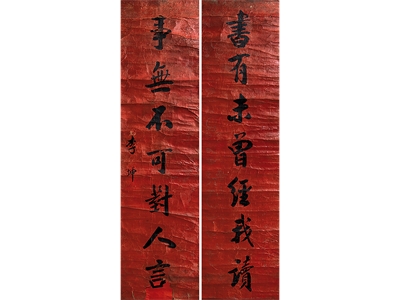 書有未曾經我讀
事無不可對人言
李坤